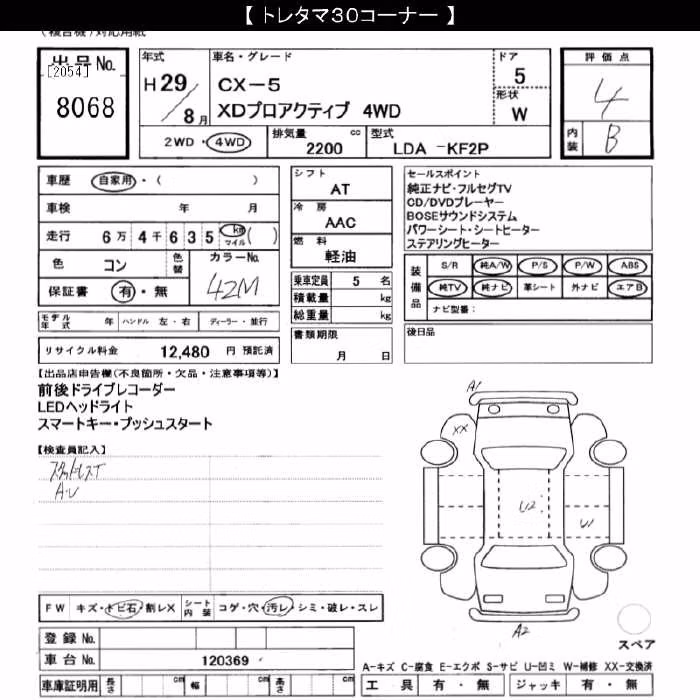 【 トレタマ30コーナー 】
(複合機)対応用紙
出品No.
[2054]
8068
年式
H29/8月
車名・グレード
CX-5
XDプロアクティブ 4WD
ドア
5
形状
W
評価点
4
内装
B
2WD・4WD
排気量 cc
2200
型式
LDA -KF2P
車歴 自家用・( )
車検 年 月
走行 6万4千635 km マイル( )
色 コン 色替
カラーNo.
42M
保証書 有・無
モデル年式 年 ハンドル 左・右 ディーラー・並行
リサイクル料金 12,480 円 預託済
シフト
AT
冷房
AAC
燃料
軽油
乗車定員 5 名
積載量 kg
総重量 kg
書類期限
月 日
セールスポイント
純正ナビ・フルセグTV
CD/DVDプレーヤー
BOSEサウンドシステム
パワーシート・シートヒーター
ステアリングヒーター
装備品
S/R 純A/W P/S P/W ABS
純TV 純ナビ 革シート 外ナビ エアB
ナビ型番:
後日品
【出品店申告欄(不良箇所・欠品・注意事項等)】
前後ドライブレコーダー
LEDヘッドライト
スマートキー・プッシュスタート
【検査員記入】
A・U
A1
XX
U2
U1
A2
スペア
FW キズ・トビ石・割レX シート内装 コゲ・穴・汚レ・シミ・破レ・スレ
登録 No.
車台 No. 120369
A-キズ C-腐食 E-エクボ S-サビ U-凹ミ W-補修 XX-交換済
車庫証明用 長さ cm 幅 cm 高さ cm
工具 有・無 ジャッキ 有・無